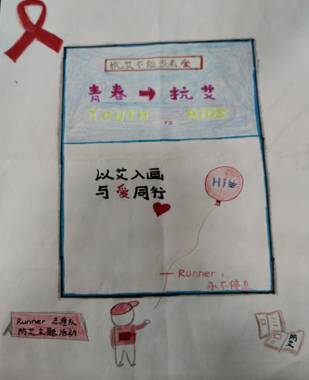 抗艾不能没有爱
青春➡抗艾
YOUTH vs AIDS
以艾入画
与爱同行
Hi
Runner，
永不停息
Runner 志愿队
防艾主题活动